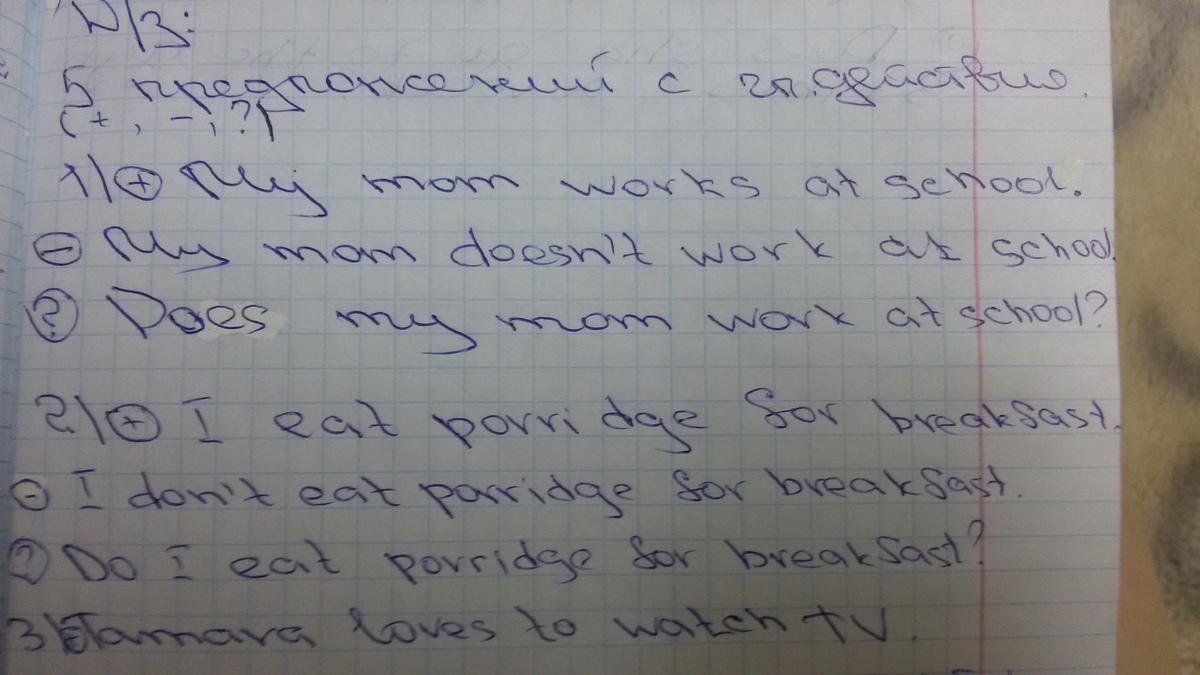 Д/З:
5 предложений с гл. действия.
(+, -, ?)
1) + My mom works at school.
- My mom doesn't work at school.
? Does my mom work at school?
2) + I eat porridge for breakfast.
- I don't eat porridge for breakfast.
? Do I eat porridge for breakfast?
3) Tamara loves to watch TV.